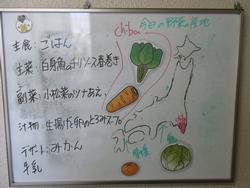 今日の野菜の産地
chiba
主食：ごはん
主菜：白身魚のチリソース春巻き
副菜：小松菜のツナあえ
汁物：生揚げと卵のとろみスープ
デザート：みかん
牛乳